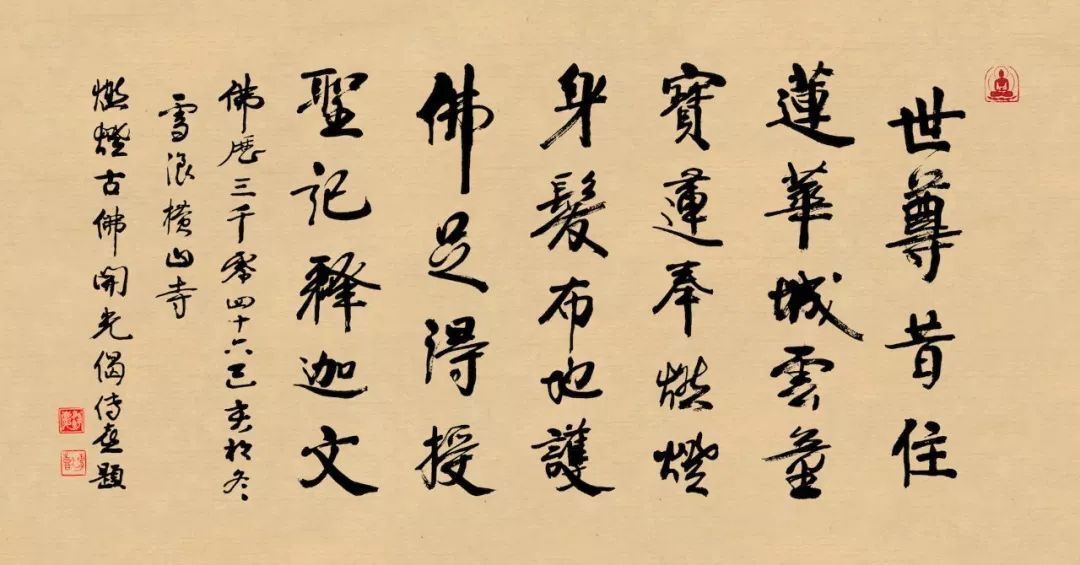 世尊昔住
蓮華城雲童
寶蓮奉燃燈
身髮布地護
佛足得授
聖記释迦文
佛歷三千零四十六己亥初冬
雪浪横山寺
燃燈古佛開光偈传喜題